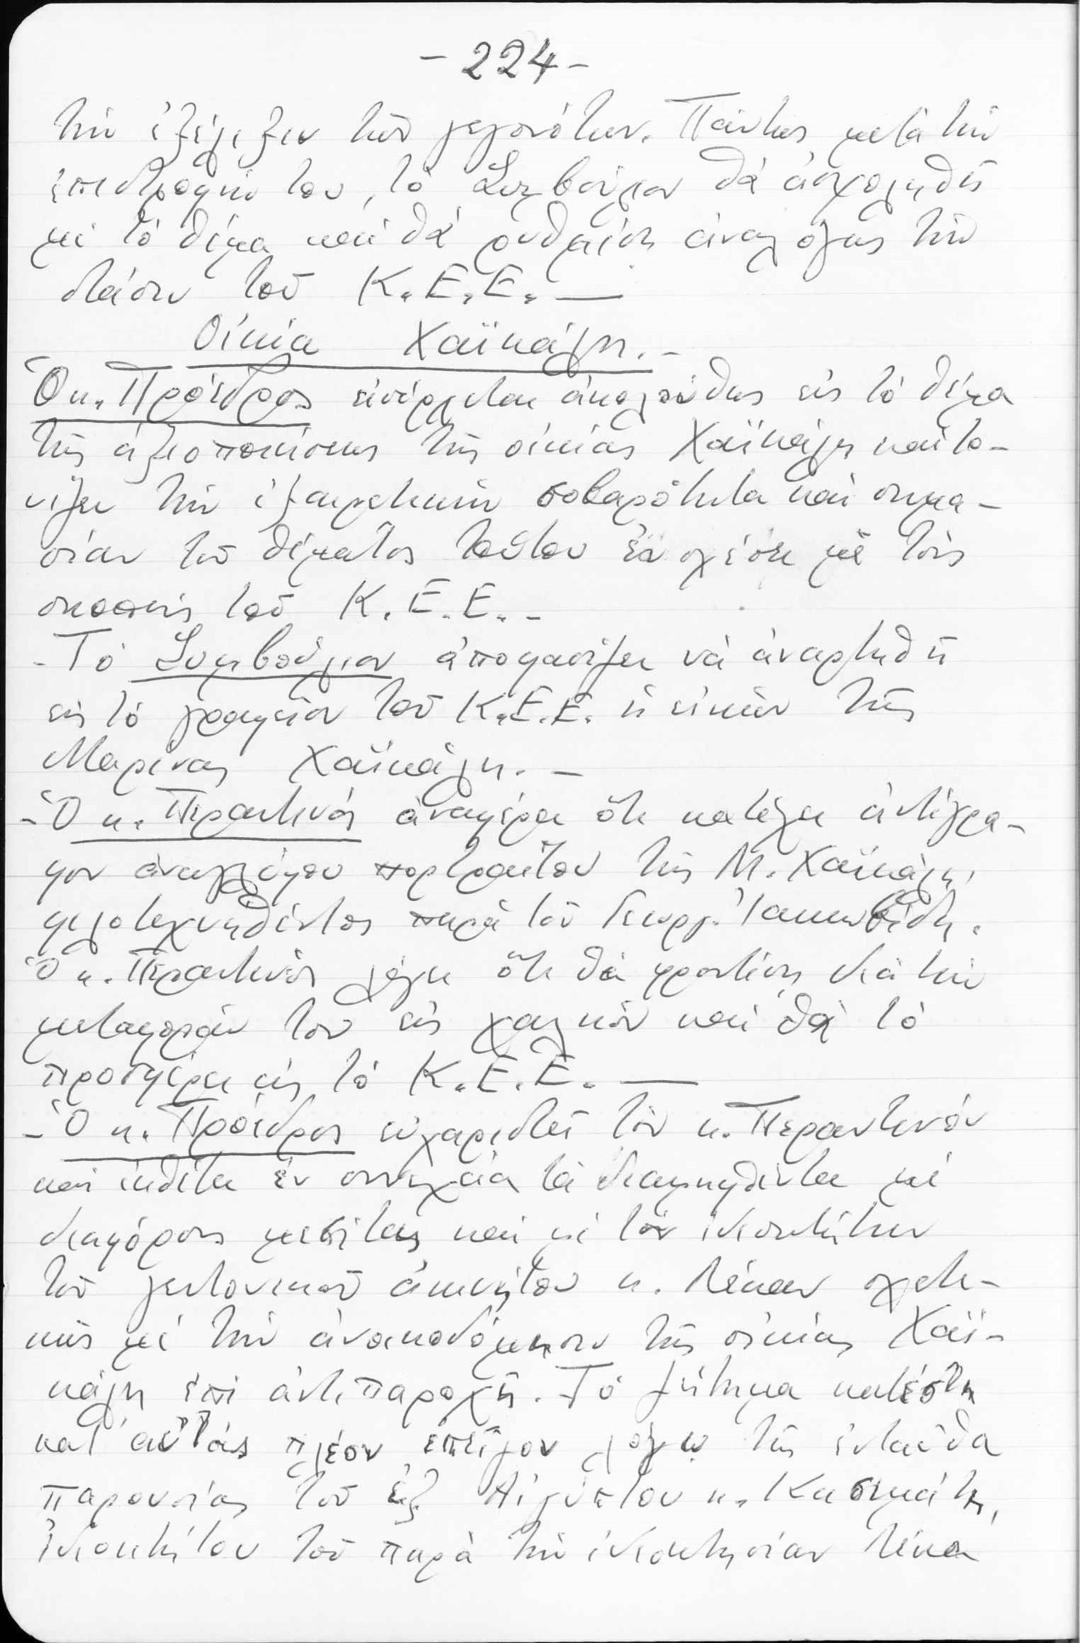 - 224 -
τὴν ἐξέλιξιν τῶν γεγονότων. Πάντως μετὰ τὴν
ἐπιστροφήν του, τὸ Συμβούλιον θὰ ἀσχοληθῇ
μὲ τὸ θέμα καὶ θὰ ρυθμίσῃ ἀναλόγως τὴν
στάσιν τοῦ Κ.Ε.Ε. —
Οἰκία Χαϊκάλη. -
Ὁ κ. Πρόεδρος εἰσέρχεται ἀκολούθως εἰς τὸ θέμα
τῆς ἀξιοποιήσεως τῆς οἰκίας Χαϊκάλη καὶ το-
νίζει τὴν ἐξαιρετικὴν σοβαρότητα καὶ σημα-
σίαν τοῦ θέματος τούτου ἐν σχέσει μὲ τοὺς
σκοποὺς τοῦ Κ.Ε.Ε. -
- Τὸ Συμβούλιον ἀποφασίζει νὰ ἀναρτηθῇ
εἰς τὸ γραφεῖον τοῦ Κ.Ε.Ε. ἡ εἰκὼν τῆς
Μαρίνας Χαϊκάλη. -
- Ὁ κ. Περαντινός ἀναφέρει ὅτι κατέχει ἀντίγρα-
φον ἀναγλύφου πορτραίτου τῆς Μ. Χαϊκάλη,
φιλοτεχνηθέντος παρὰ τοῦ Γεωργ. Ἰακωβίδη.
Ὁ κ. Περαντινὸς λέγει ὅτι θὰ φροντίσῃ διὰ τὴν
μεταφοράν του εἰς χαλκὸν καὶ θὰ τὸ
προσφέρει εἰς τὸ Κ.Ε.Ε. —
- Ὁ κ. Πρόεδρος εὐχαριστεῖ τὸν κ. Περαντινόν
καὶ ἐκθέτει ἐν συνεχείᾳ τὰ διαμειφθέντα μὲ
διαφόρους μεσίτας καὶ μὲ τὸν ἰδιοκτήτην
τοῦ γειτονικοῦ ἀκινήτου κ. Λέκαν σχετι-
κῶς μὲ τὴν ἀνοικοδόμησιν τῆς οἰκίας Χαϊ-
κάλη ἐπὶ ἀντιπαροχῇ. Τὸ ζήτημα κατέστη
κατ' αὐτὰς πλέον ἐπεῖγον λόγῳ τῆς ἐνταῦθα
παρουσίας τοῦ ἐξ Αἰγύπτου κ. Κασιμάτη,
ἰδιοκτήτου τοῦ παρὰ τὴν ἰδιοκτησίαν Λέκα